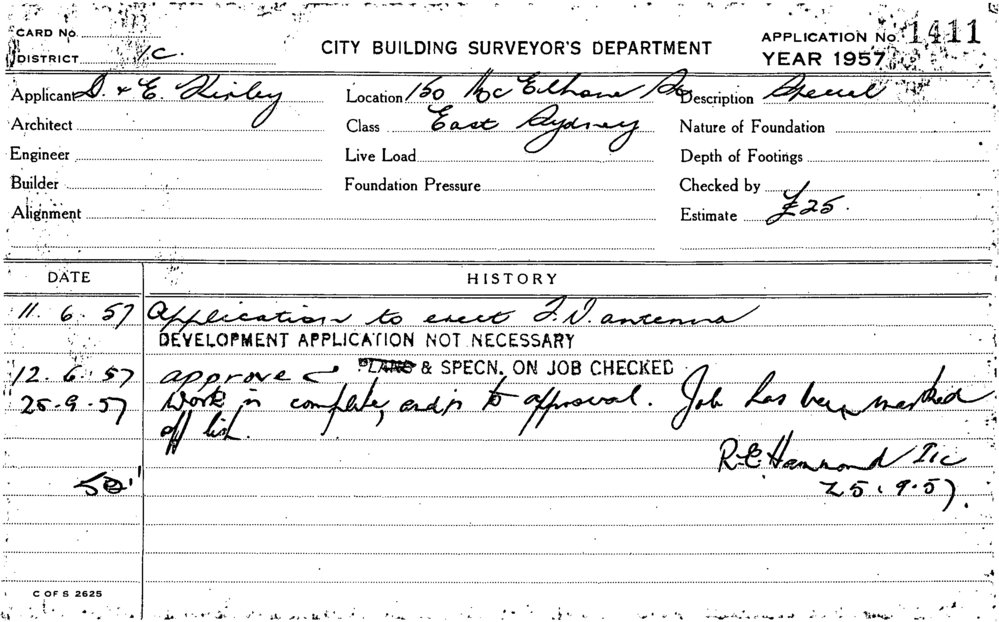 CARD No.
DISTRICT 1c.
CITY BUILDING SURVEYOR'S DEPARTMENT
APPLICATION No. 1411
YEAR 1957
Applicant D. & E. Kirby
Location 150 McElhone St
Description Special
Architect
Class East Sydney
Nature of Foundation
Engineer
Live Load
Depth of Footings
Builder
Foundation Pressure
Checked by
Alignment
Estimate £25.
DATE
HISTORY
11. 6. 57 Application to erect T.V. antenna
DEVELOPMENT APPLICATION NOT NECESSARY
12. 6. 57 approved PLANS & SPECN. ON JOB CHECKED
25. 9. 57 Work is complete, and is to approval. Job has been marked
off list.
R.E. Hammond
25.9.57.
C OF S 2625